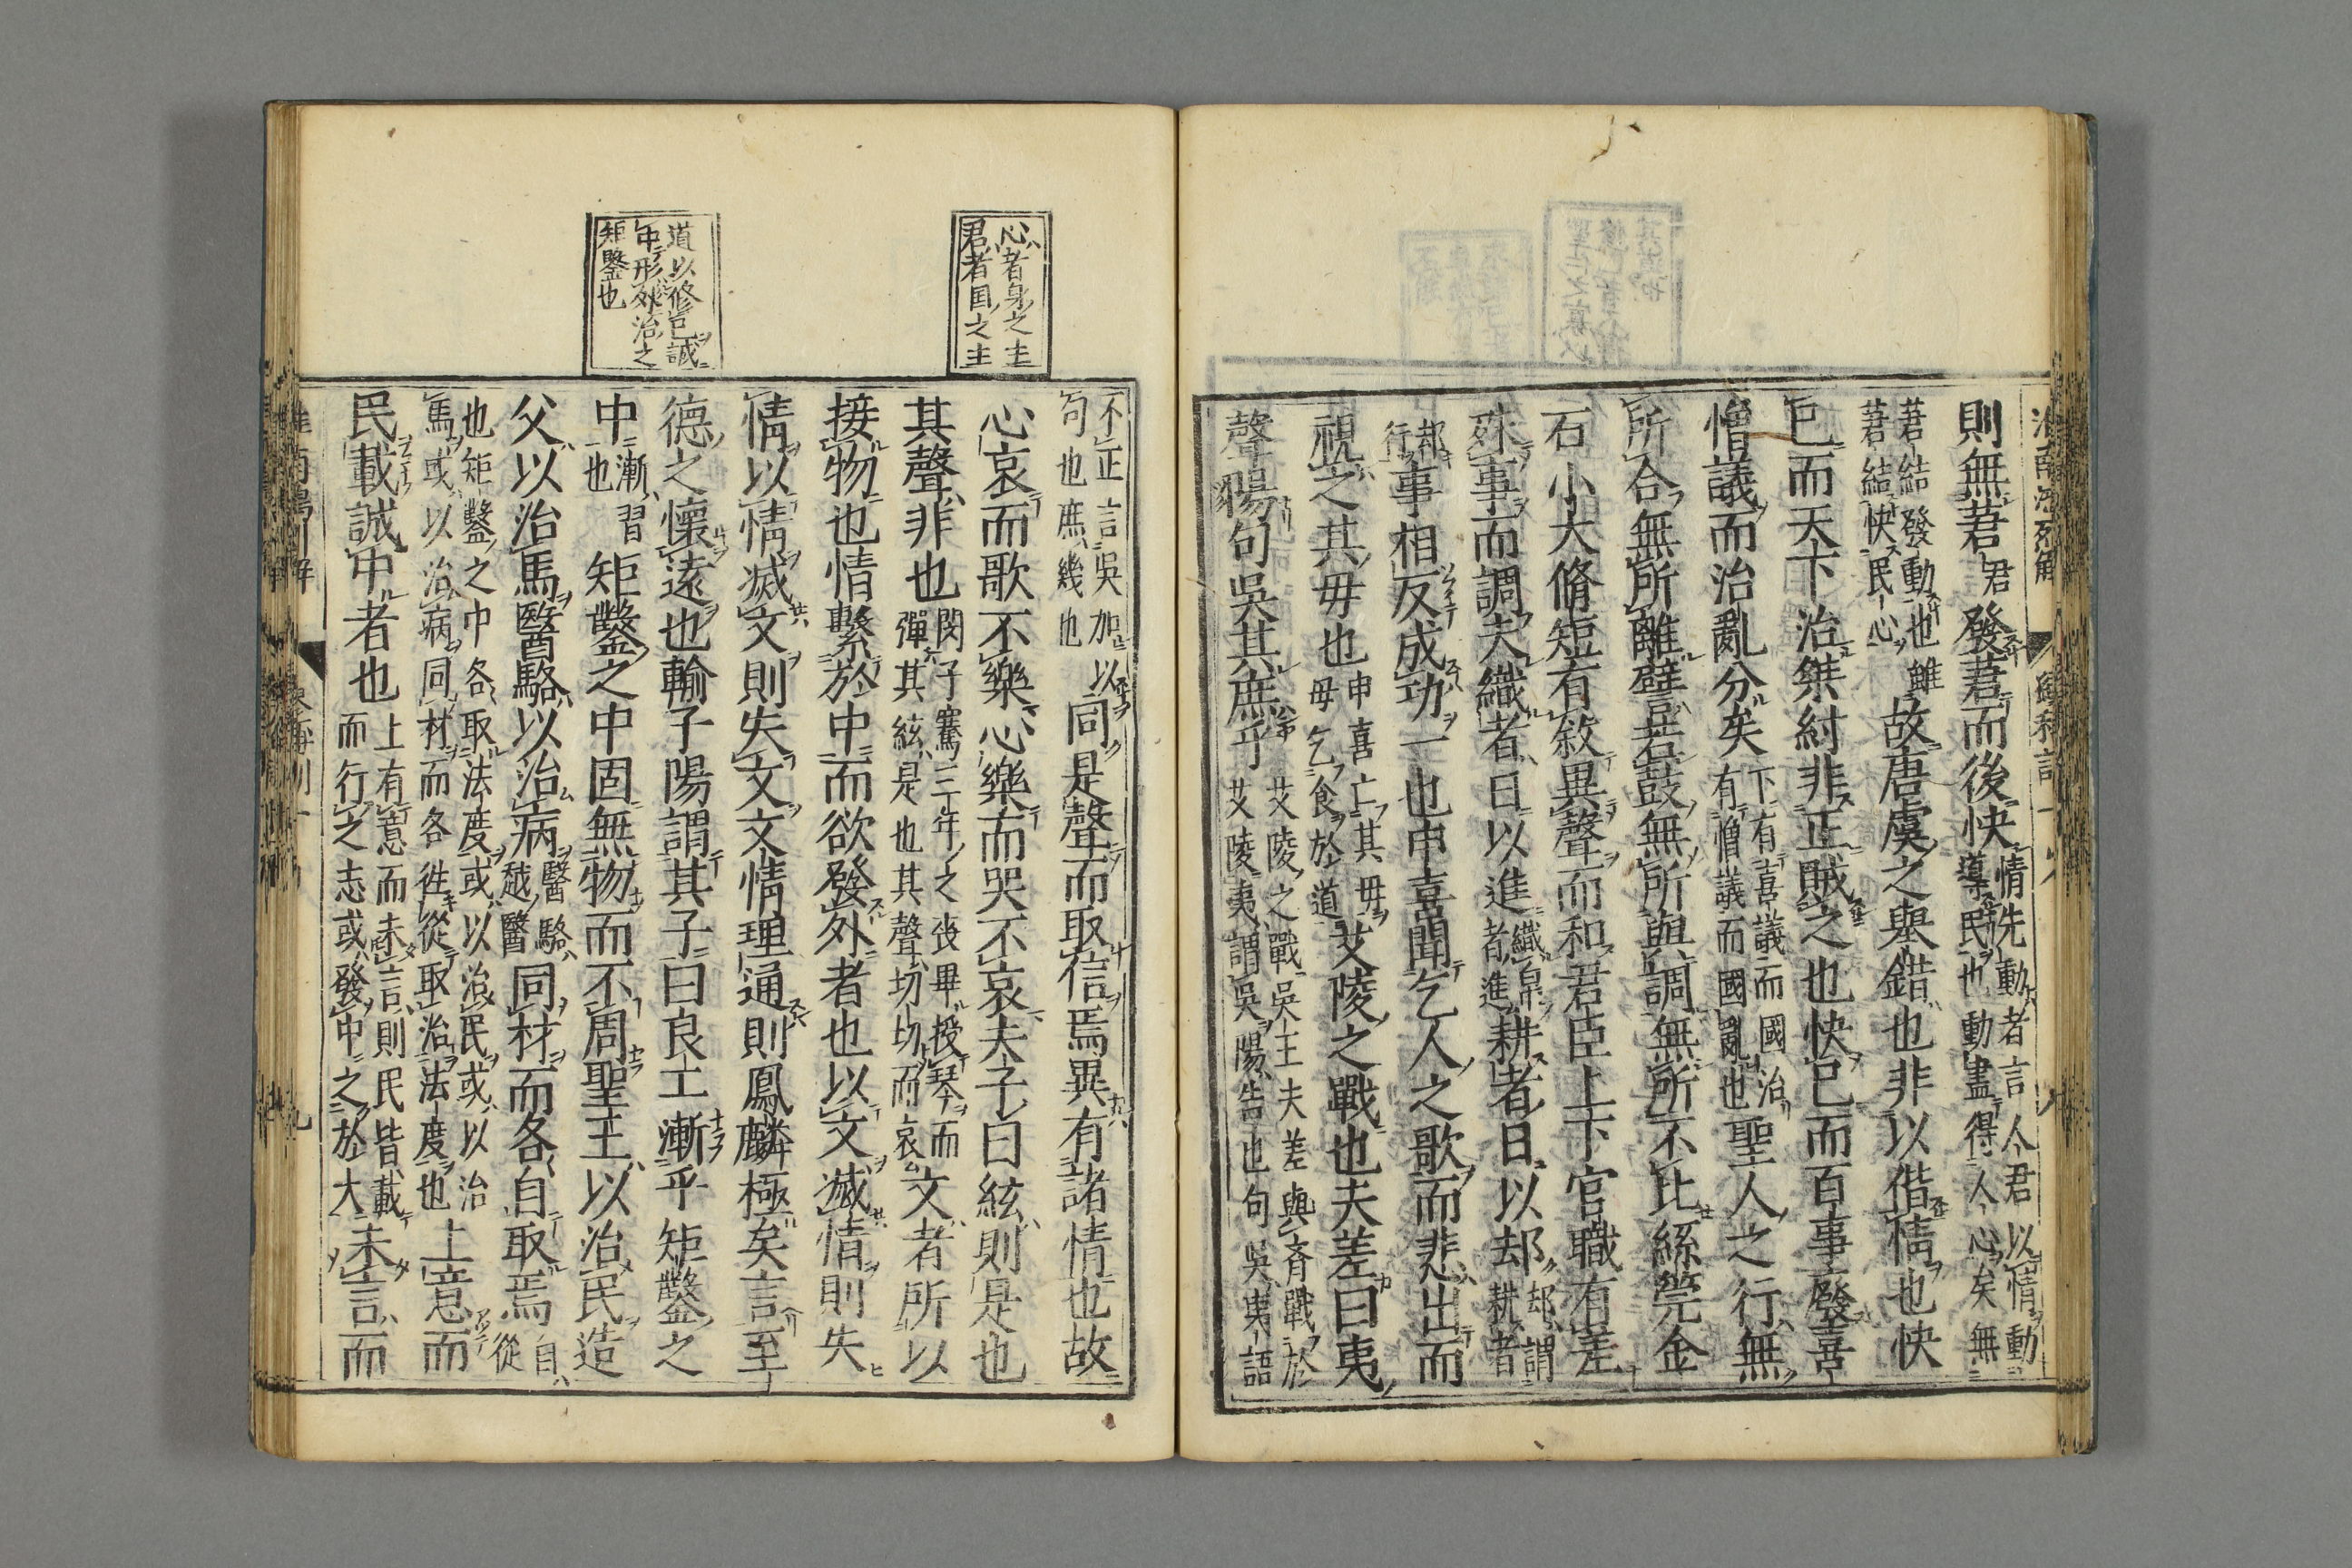 則無莙君發莙而後快情先動者言人君以情動導民也動盡得人心矣無
莙結發動也雖莙結快民心故唐虞之舉錯也非以偕情也快
已而天下治桀紂非正賊之也快已而百事廢喜
憎議而治亂分矣下有喜議而國治有憎議而國亂也聖人之行無
所合無所離譬若鼓無所與調無所不比絲筦金
石小大脩短有敘異聲而和君臣上下官職有差
殊事而調夫織者日以進織帛者進耕者日以却却謂耕者
却行事相反成功一也申喜聞乞人之歌而悲出而
視之其母也申喜亡其母母乞食於道艾陵之戰也夫差曰夷
聲陽句吳其庶乎艾陵之戰吳王夫差與齊戰於艾陵夷謂吳陽告也句吳夷語
不正言吳加以句也庶幾也同是聲而取信焉異有諸情也故
心哀而歌不樂心樂而哭不哀夫子曰絃則是也
其聲非也閔子騫三年之喪畢授琴而彈其絃是也其聲切切而哀文者所以
接物也情繫於中而欲發外者也以文滅情則失
情以情滅文則失文文情理通則鳳麟極矣言至
德之懷遠也輸子陽謂其子曰良工漸乎矩鑿之
中漸習也矩鑿之中固無物而不周聖王以治民造
父以治馬醫駱以治病醫駱越醫同材而各自取焉自從
也矩鑿之中各取法度或以治民或以治馬或以治病同材而各往從取治法度也上意而
民載誠中者也上有意而未言則民皆載而行之志或發中之於大未言而
心者身之主
君者国之主
道以修己誠
中形外治之
矩鑿也